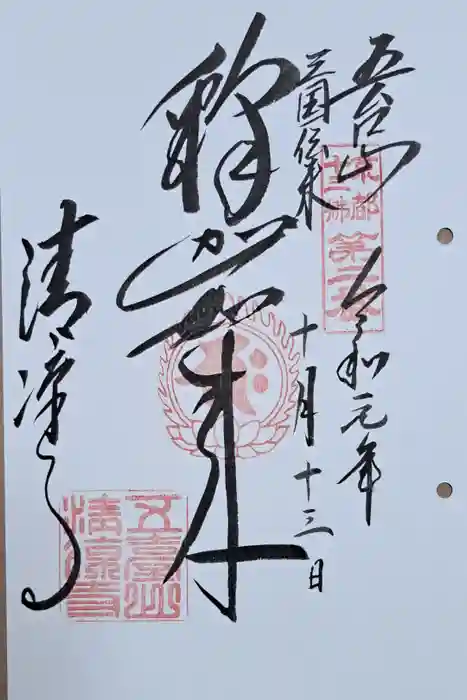 五台山
三国伝来
京都
十三佛
第二番
令和元年
十月十三日
釈迦如来
清凉寺
五臺山
清涼寺